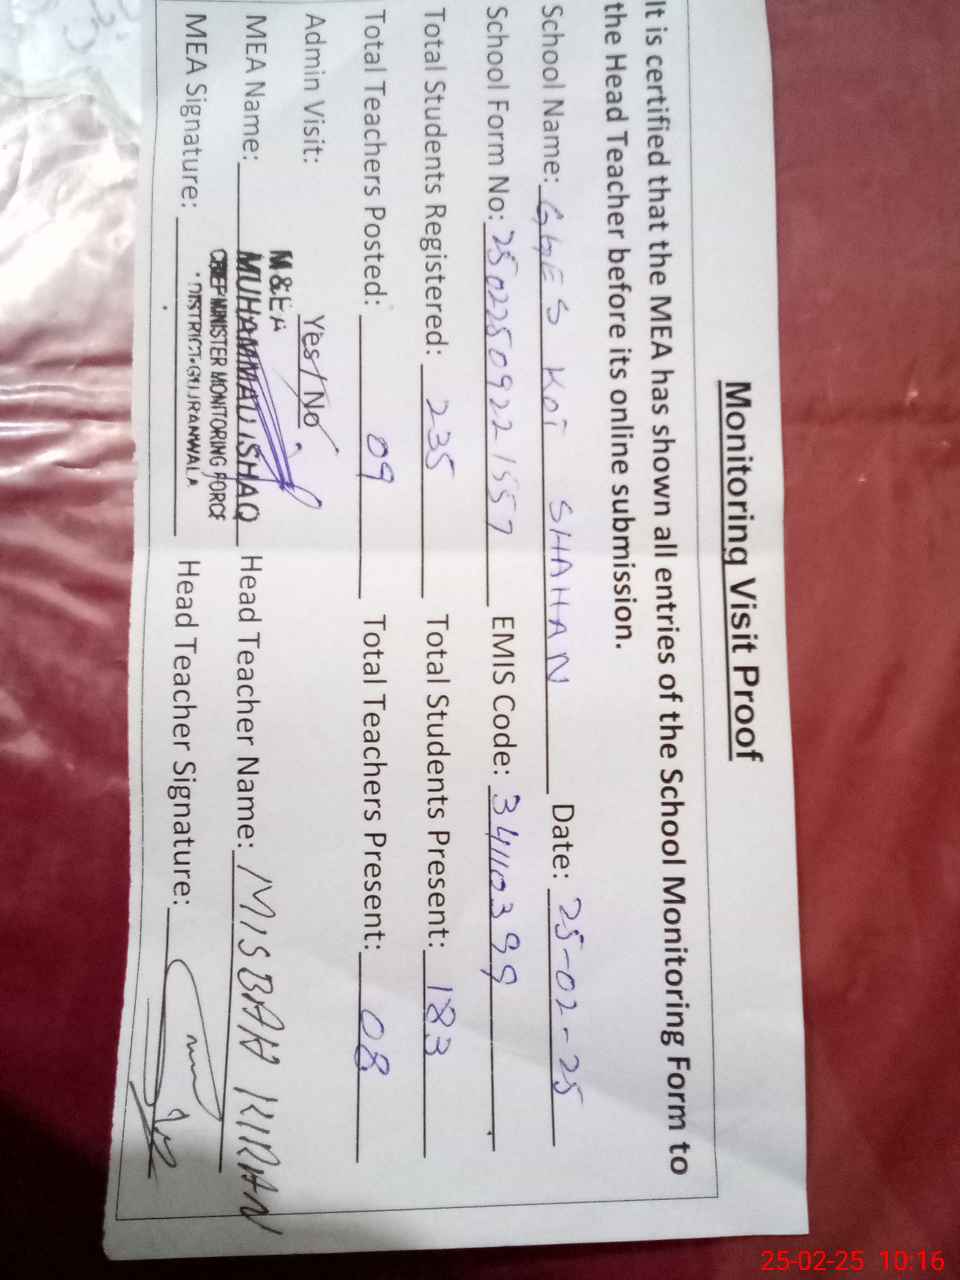 Monitoring Visit Proof
It is certified that the MEA has shown all entries of the School Monitoring Form to
the Head Teacher before its online submission.
School Name: GGES KOT SHAHAN Date: 25-02-25
School Form No: 25022509221557 EMIS Code: 34110399
Total Students Registered: 235 Total Students Present: 183
Total Teachers Posted: 09 Total Teachers Present: 08
Admin Visit: Yes/No
M&EA
MEA Name: MUHAMMAD ISHAQ Head Teacher Name: MISBAH KIRAN
CHIEF MINISTER MONITORING FORCE
MEA Signature: DISTRICT.GUJRANWALA Head Teacher Signature:
25-02-25 10:16